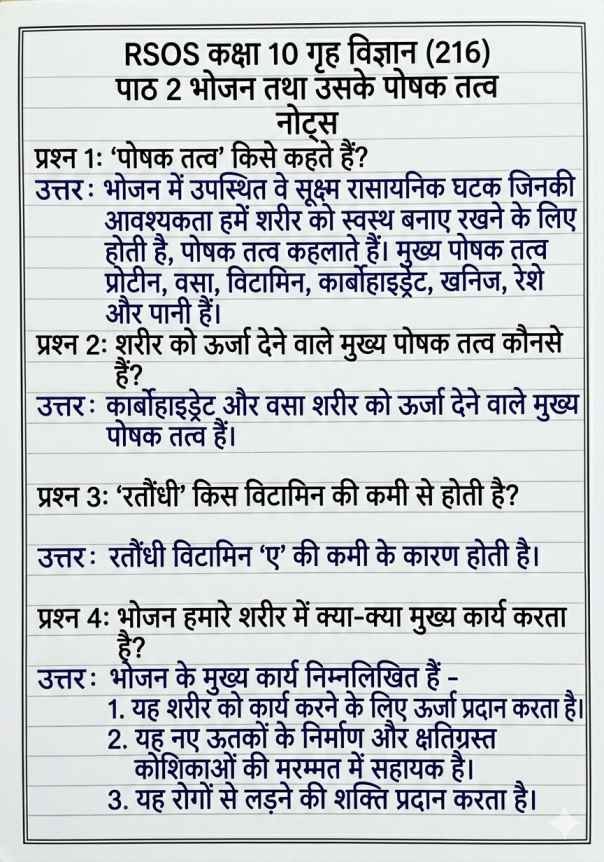 RSOS कक्षा 10 गृह विज्ञान (216)
पाठ 2 भोजन तथा उसके पोषक तत्व
नोट्स
प्रश्न 1: ‘पोषक तत्व’ किसे कहते हैं?
उत्तर : भोजन में उपस्थित वे सूक्ष्म रासायनिक घटक जिनकी
आवश्यकता हमें शरीर को स्वस्थ बनाए रखने के लिए
होती है, पोषक तत्व कहलाते हैं। मुख्य पोषक तत्व
प्रोटीन, वसा, विटामिन, कार्बोहाइड्रेट, खनिज, रेशे
और पानी हैं।
प्रश्न 2: शरीर को ऊर्जा देने वाले मुख्य पोषक तत्व कौनसे
हैं?
उत्तर : कार्बोहाइड्रेट और वसा शरीर को ऊर्जा देने वाले मुख्य
पोषक तत्व हैं।
प्रश्न 3: ‘रतौंधी’ किस विटामिन की कमी से होती है?
उत्तर : रतौंधी विटामिन ‘ए’ की कमी के कारण होती है।
प्रश्न 4: भोजन हमारे शरीर में क्या-क्या मुख्य कार्य करता
है?
उत्तर : भोजन के मुख्य कार्य निम्नलिखित हैं -
1. यह शरीर को कार्य करने के लिए ऊर्जा प्रदान करता है।
2. यह नए ऊतकों के निर्माण और क्षतिग्रस्त
कोशिकाओं की मरम्मत में सहायक है।
3. यह रोगों से लड़ने की शक्ति प्रदान करता है।